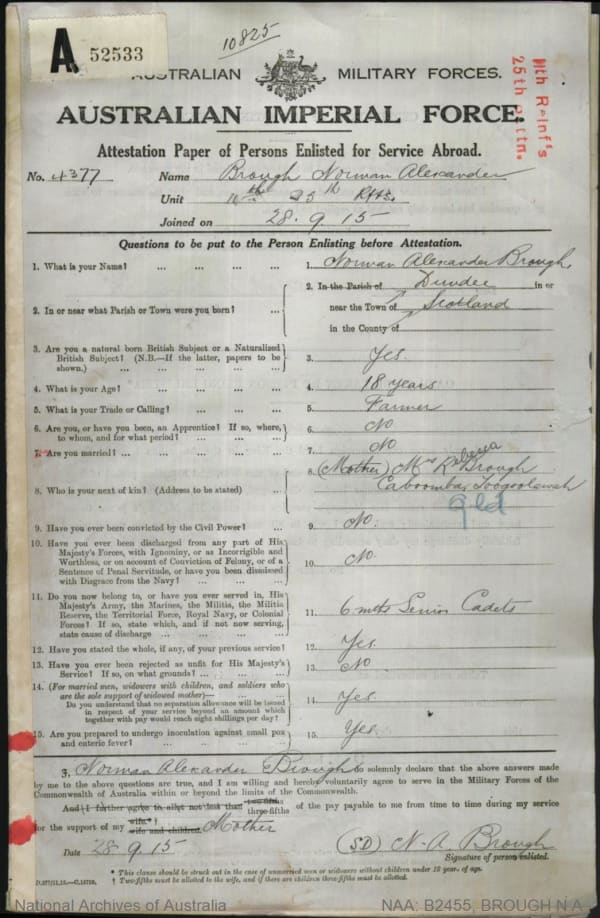 A. 52533
10825
AUSTRALIAN MILITARY FORCES.
AUSTRALIAN IMPERIAL FORCE.
11th Reinf's
25th Battn.
Attestation Paper of Persons Enlisted for Service Abroad.
No. 4377 Name Brough Norman Alexander
Unit 10th 25th Rfts.
Joined on 28.9.15
Questions to be put to the Person Enlisting before Attestation.
1. What is your Name? ... ... ... ... 1. Norman Alexander Brough
2. In or near what Parish or Town were you born? ... 2. In the Parish of Dundee in or
near the Town of Scotland
in the County of
3. Are you a natural born British Subject or a Naturalized
British Subject? (N.B.—If the latter, papers to be
shown.) ... ... ... ... ... 3. Yes
4. What is your Age? ... ... ... ... 4. 18 years
5. What is your Trade or Calling? ... ... ... 5. Farmer
6. Are you, or have you been, an Apprentice? If so, where,
to whom, and for what period? ... ... ... 6. No
7. Are you married? ... ... ... ... ... 7. No
8. Who is your next of kin? (Address to be stated) ... 8. (Mother) Mrs Rebecca Brough
Caboombar Toogoolawah
Qld
9. Have you ever been convicted by the Civil Power? ... 9. No.
10. Have you ever been discharged from any part of His
Majesty's Forces, with Ignominy, or as Incorrigible and
Worthless, or on account of Conviction of Felony, or of a
Sentence of Penal Servitude, or have you been dismissed
with Disgrace from the Navy? ... ... ... 10. No.
11. Do you now belong to, or have you ever served in, His
Majesty's Army, the Marines, the Militia, the Militia
Reserve, the Territorial Force, Royal Navy, or Colonial
Forces? If so, state which, and if not now serving,
state cause of discharge ... ... ... ... 11. 6 mths Senior Cadets
12. Have you stated the whole, if any, of your previous service? 12. Yes.
13. Have you ever been rejected as unfit for His Majesty's
Service? If so, on what grounds? ... ... ... 13. No
14. (For married men, widowers with children, and soldiers who
are the sole support of widowed mother)—
Do you understand that no separation allowance will be issued
in respect of your service beyond an amount which
together with pay would reach eight shillings per day? 14. Yes
15. Are you prepared to undergo inoculation against small pox
and enteric fever? ... ... ... ... 15. Yes.
I, Norman Alexander Brough do solemnly declare that the above answers made
by me to the above questions are true, and I am willing and hereby voluntarily agree to serve in the Military Forces of the
Commonwealth of Australia within or beyond the limits of the Commonwealth.
And I further agree to allot not less than two-fifths
three-fifths of the pay payable to me from time to time during my service
for the support of my wife.*†
wife and children Mother
Date 28.9.15 (SD) N. A. Brough
Signature of person enlisted.
* This clause should be struck out in the case of unmarried men or widowers without children under 18 years of age.
† Two-fifths must be allotted to the wife, and if there are children three-fifths must be allotted.
National Archives of Australia NAA: B2455, BROUGH N A